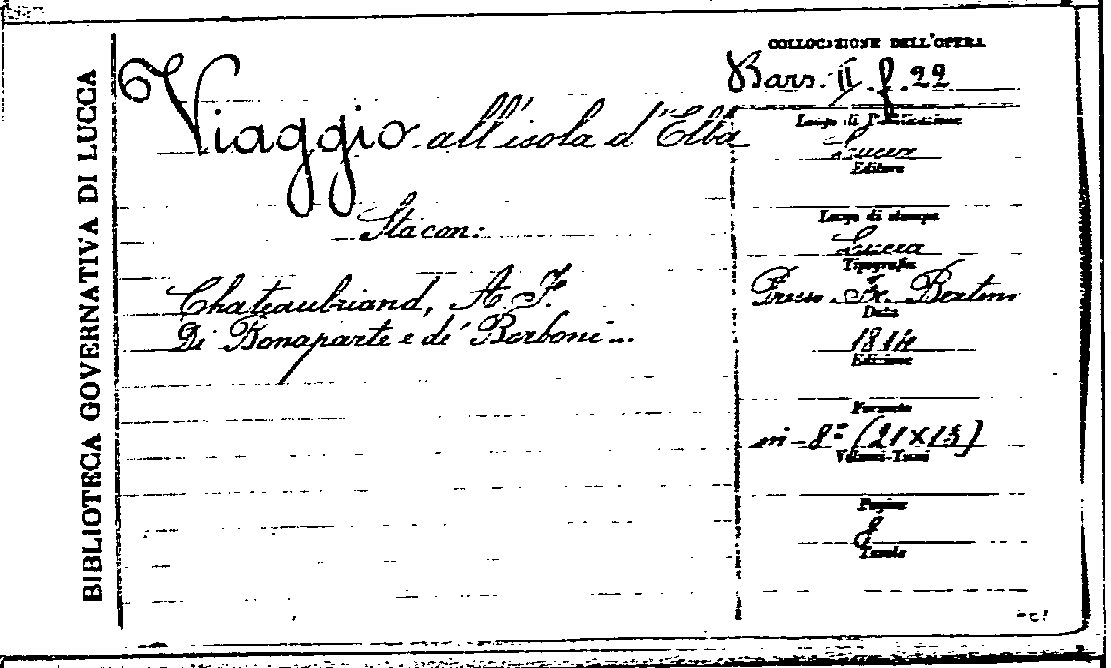 BIBLIOTECA GOVERNATIVA DI LUCCA
Viaggio all'isola d'Elba
Sta con:
Chateaubriand, A. F.
Di Bonaparte e de' Borboni...
COLLOCAZIONE DELL'OPERA
Bars. II. f. 22
Luogo di Pubblicazione
Lucca
Editore
Luogo di stampa
Lucca
Tipografia
Presso Fr. Bertini
Data
1814
Edizione
Formato
in-8º (21x13)
Volumi-Tomi
Pagine
8
Tavole